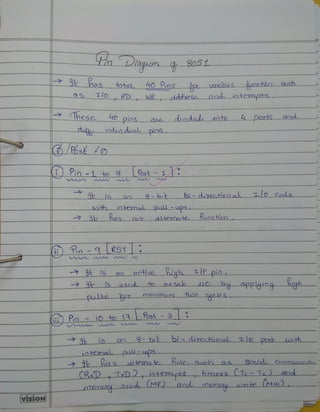 Pin Diagram of 8051
→ It has total 40 Pins for various function such
as I/O, RD, WR, address and interrupts.
→ These 40 pins are divided into 4 ports and
diff. individual pins.
(i) Pin - 1 to 8 [Port - 1] :
→ It is an 8-bit bi-directional I/O code
with internal pull-ups.
→ It has not alternate function.
(ii) Pin - 9 [RST] :
→ It is an active high I/P pin.
→ It is used to reset μc by applying high
pulse for minimum two cycles.
(iii) Pin - 10 to 17 [Port - 3] :
→ It is an 8-bit bi-directional I/O port with
internal pull-ups.
→ It has alternate func such as serial communication
(RxD, TxD), interrupts, timers (T0 - T1) and
memory read (MR) and memory write (MW).
vision